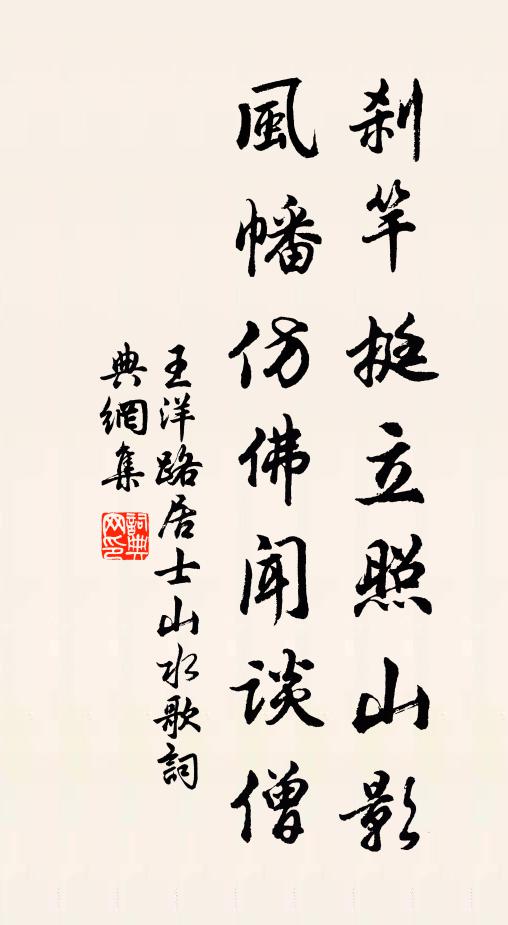 刹竿挺立照山影
風幡仿佛闻谈僧
王洋路居士山水歌詞
典網集
詞典網印